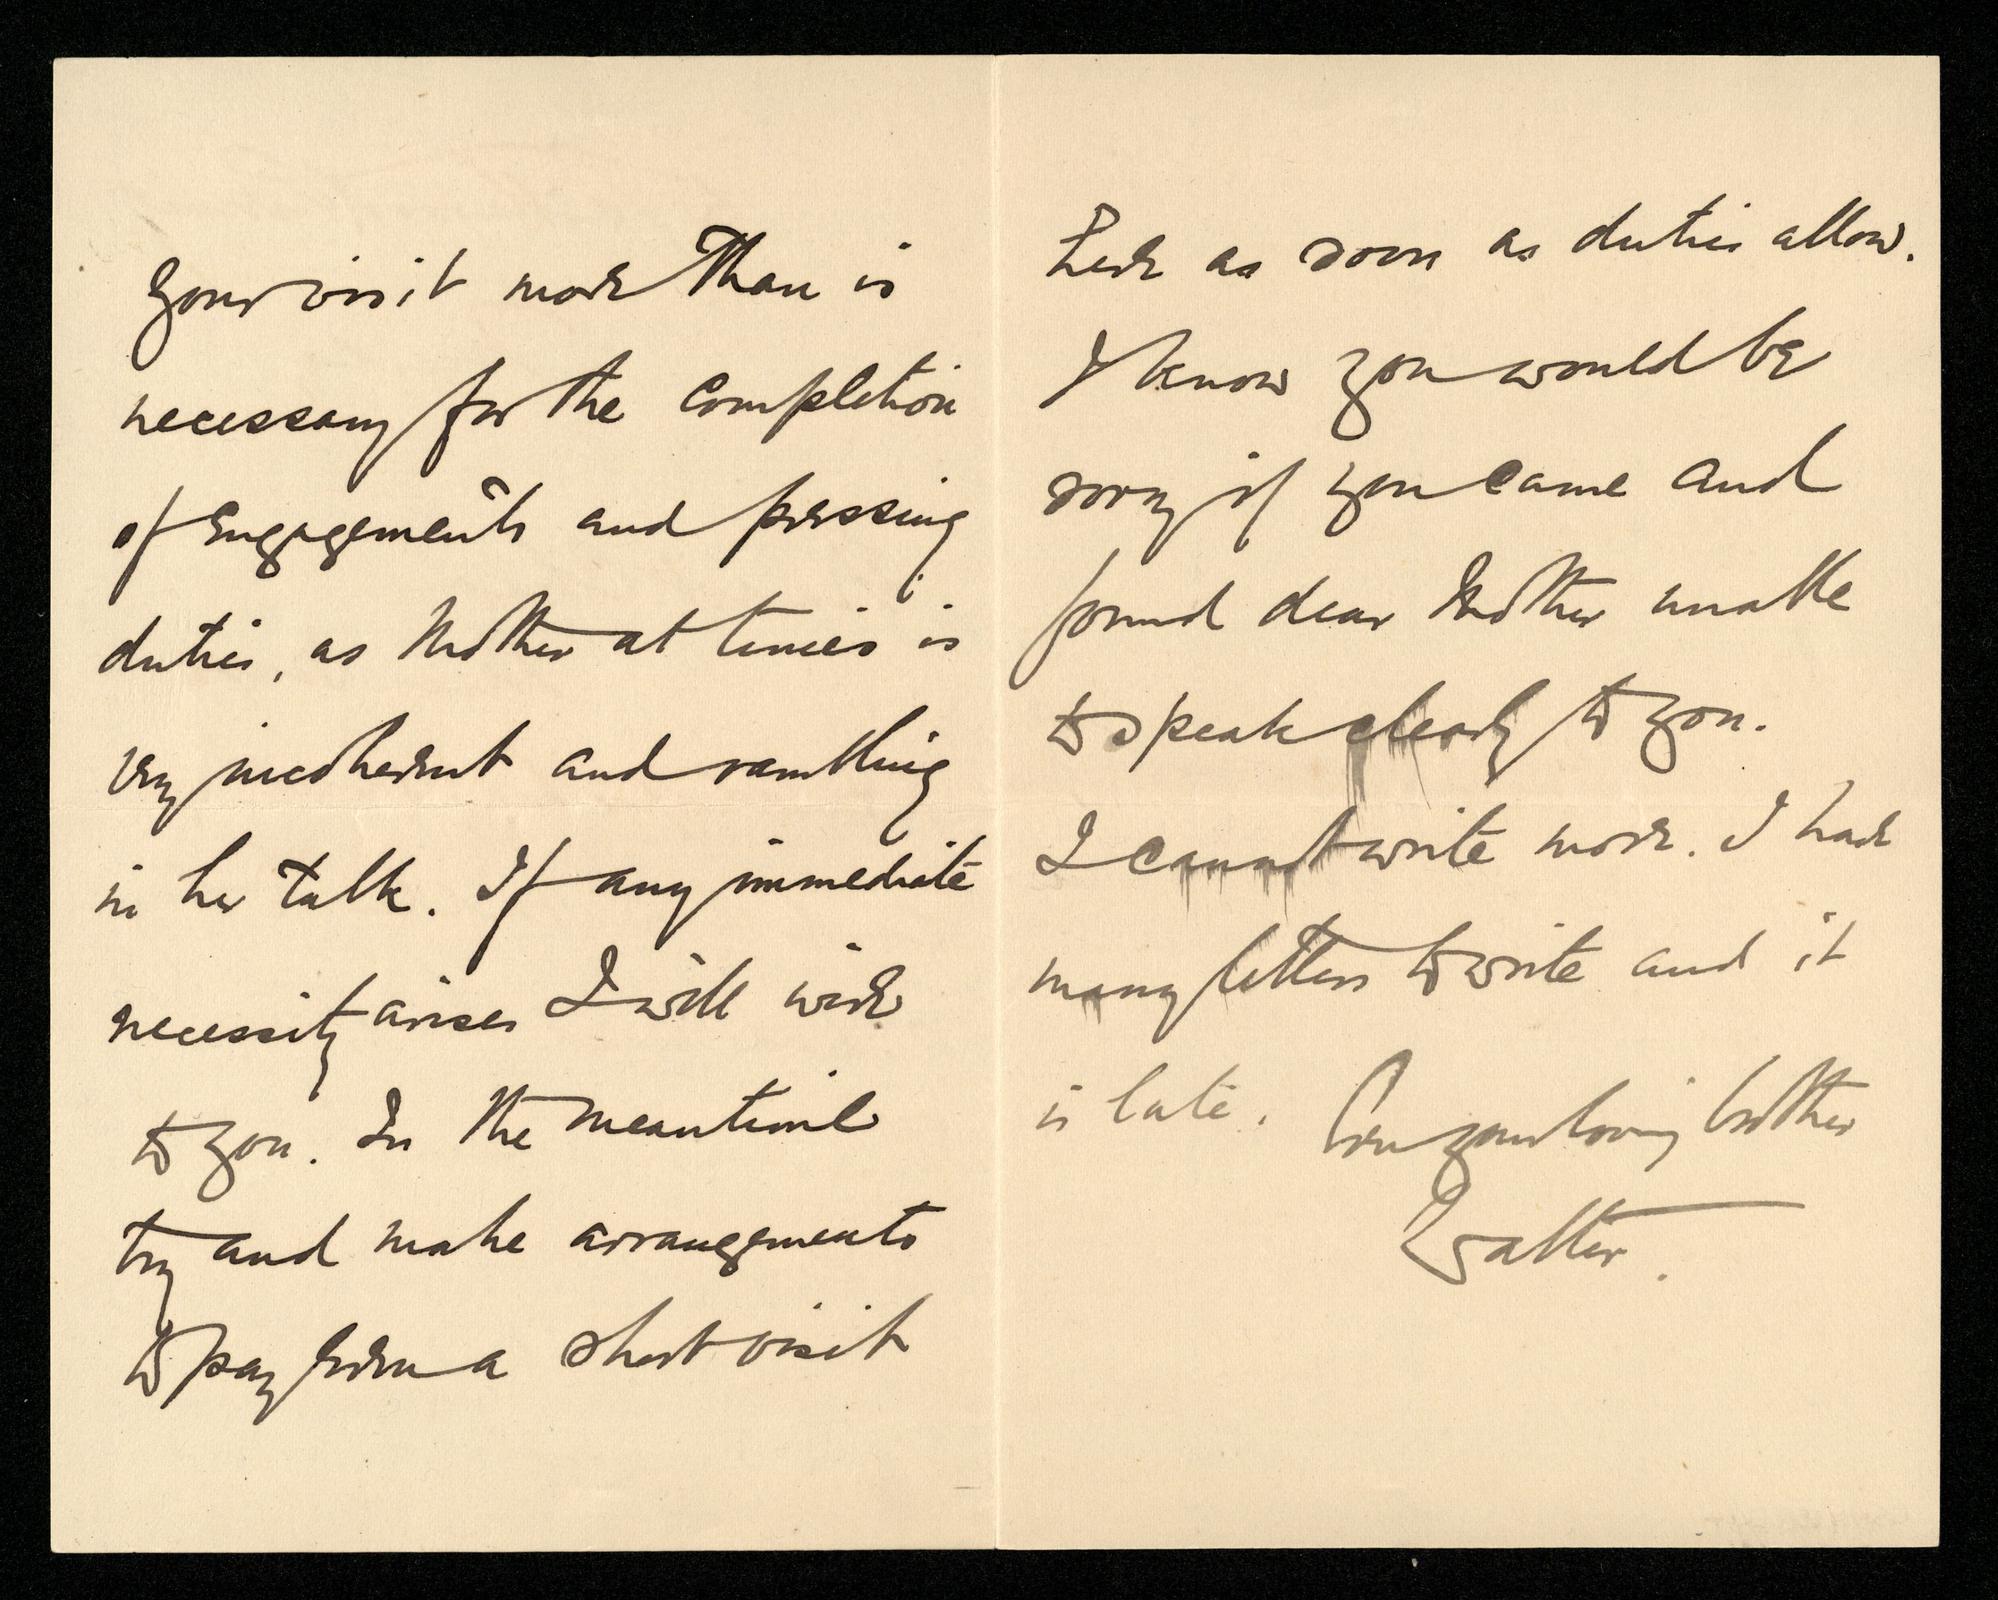 your visit more than is
necessary for the completion
of engagements and pressing
duties, as Mother at times is
very incoherent and rambling
in her talk. If any immediate
necessity arises I will wire
to you. In the meantime
try and make arrangements
to pay even a short visit
here as soon as duties allow.
I know you would be
sorry if you came and
found dear Mother unable
to speak clearly to you.
I cannot write more. I have
many letters to write and it
is late. Ever your loving brother
Walter.